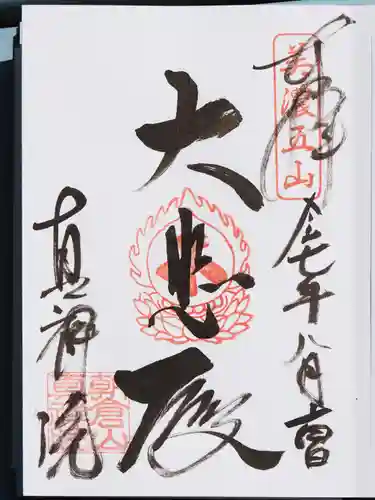 奉拝
美濃五山
令七年八月吉日
大悲殿
真神院
朝倉山